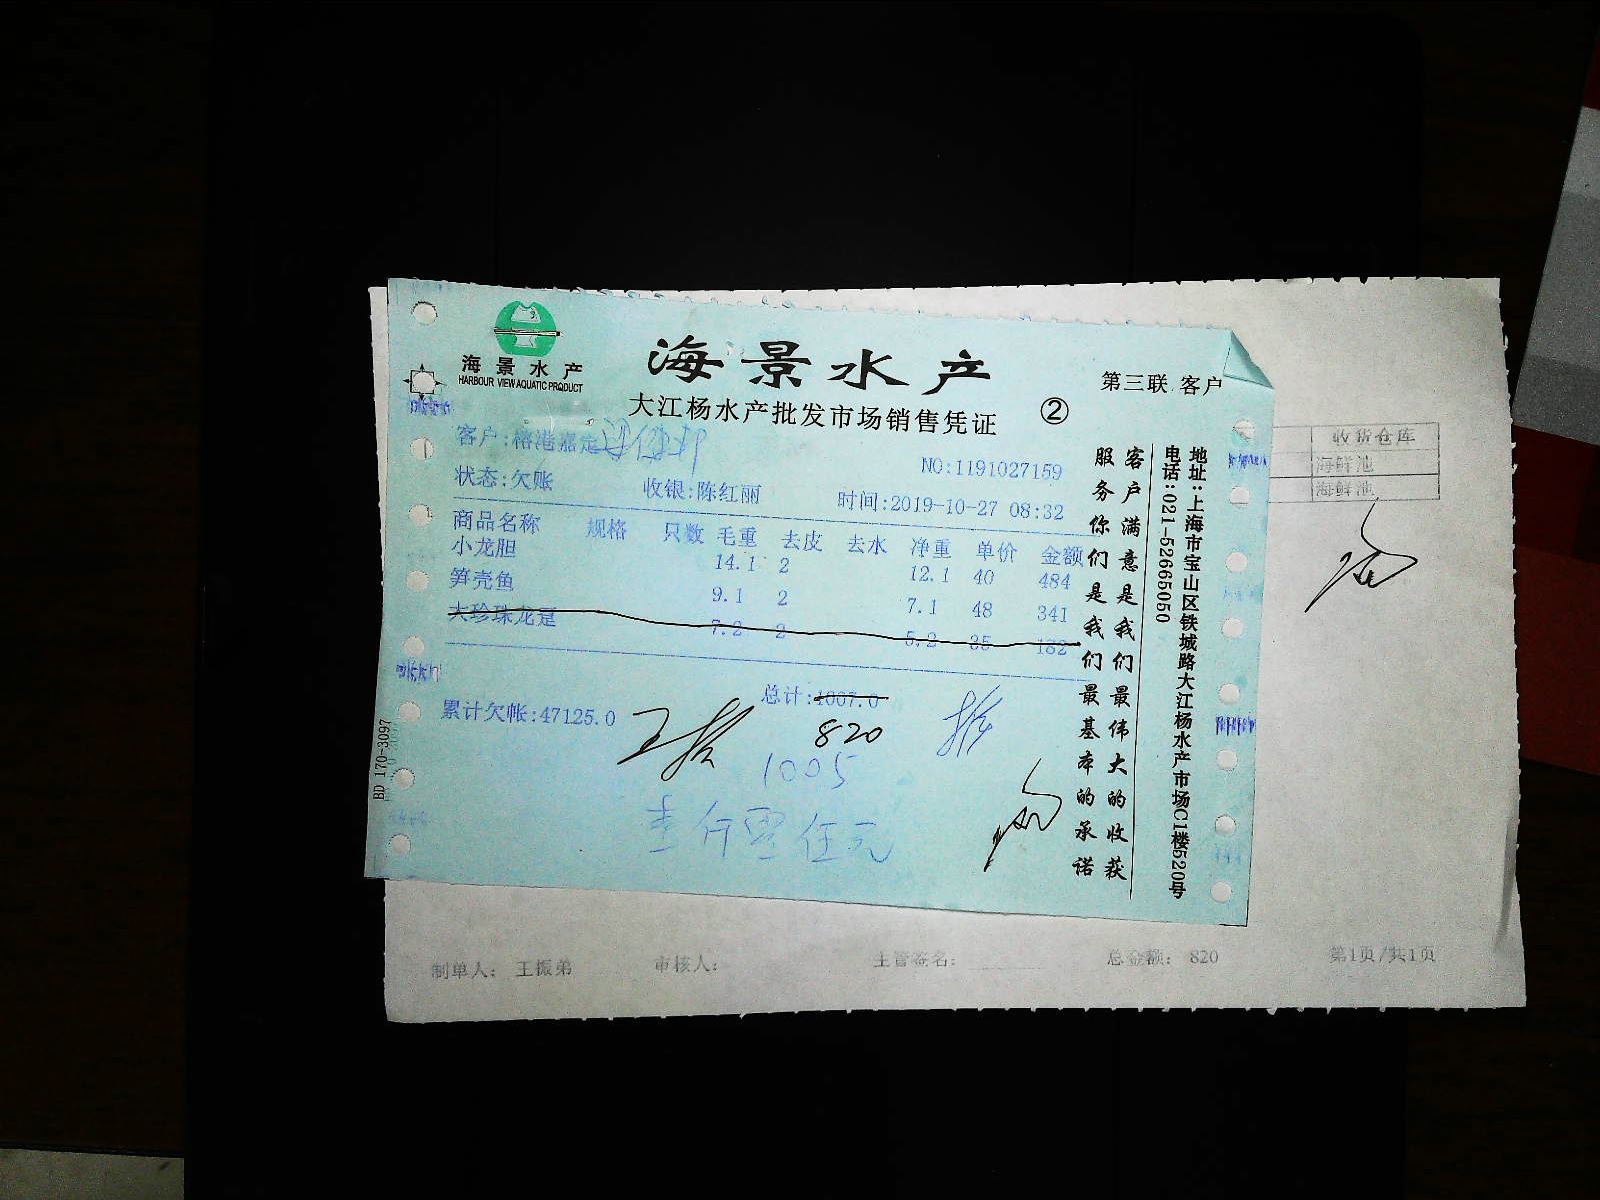 海景水产
HARBOUR VIEW AQUATIC PRODUCT
海景水产
第三联 客户
大江杨水产批发市场销售凭证 ②
客户:榕港嘉定
NO:1191027159
状态:欠账 收银:陈红丽 时间:2019-10-27 08:32
商品名称 规格 只数 毛重 去皮 去水 净重 单价 金额
小龙胆 14.1 2 12.1 40 484
笋壳鱼 9.1 2 7.1 48 341
大珍珠龙趸 7.2 2 5.2 35 182
总计:1007.0
累计欠帐:47125.0
820
1005
壹仟零伍元
客户满意是我们最伟大的收获
服务你们是我们最基本的承诺
地址:上海市宝山区铁城路大江杨水产市场C1楼520号
电话:021-52665050
BD 170-3097
收货仓库
海鲜池
海鲜池
制单人: 王振弟 审核人: 主管签名: 总金额: 820 第1页/共1页